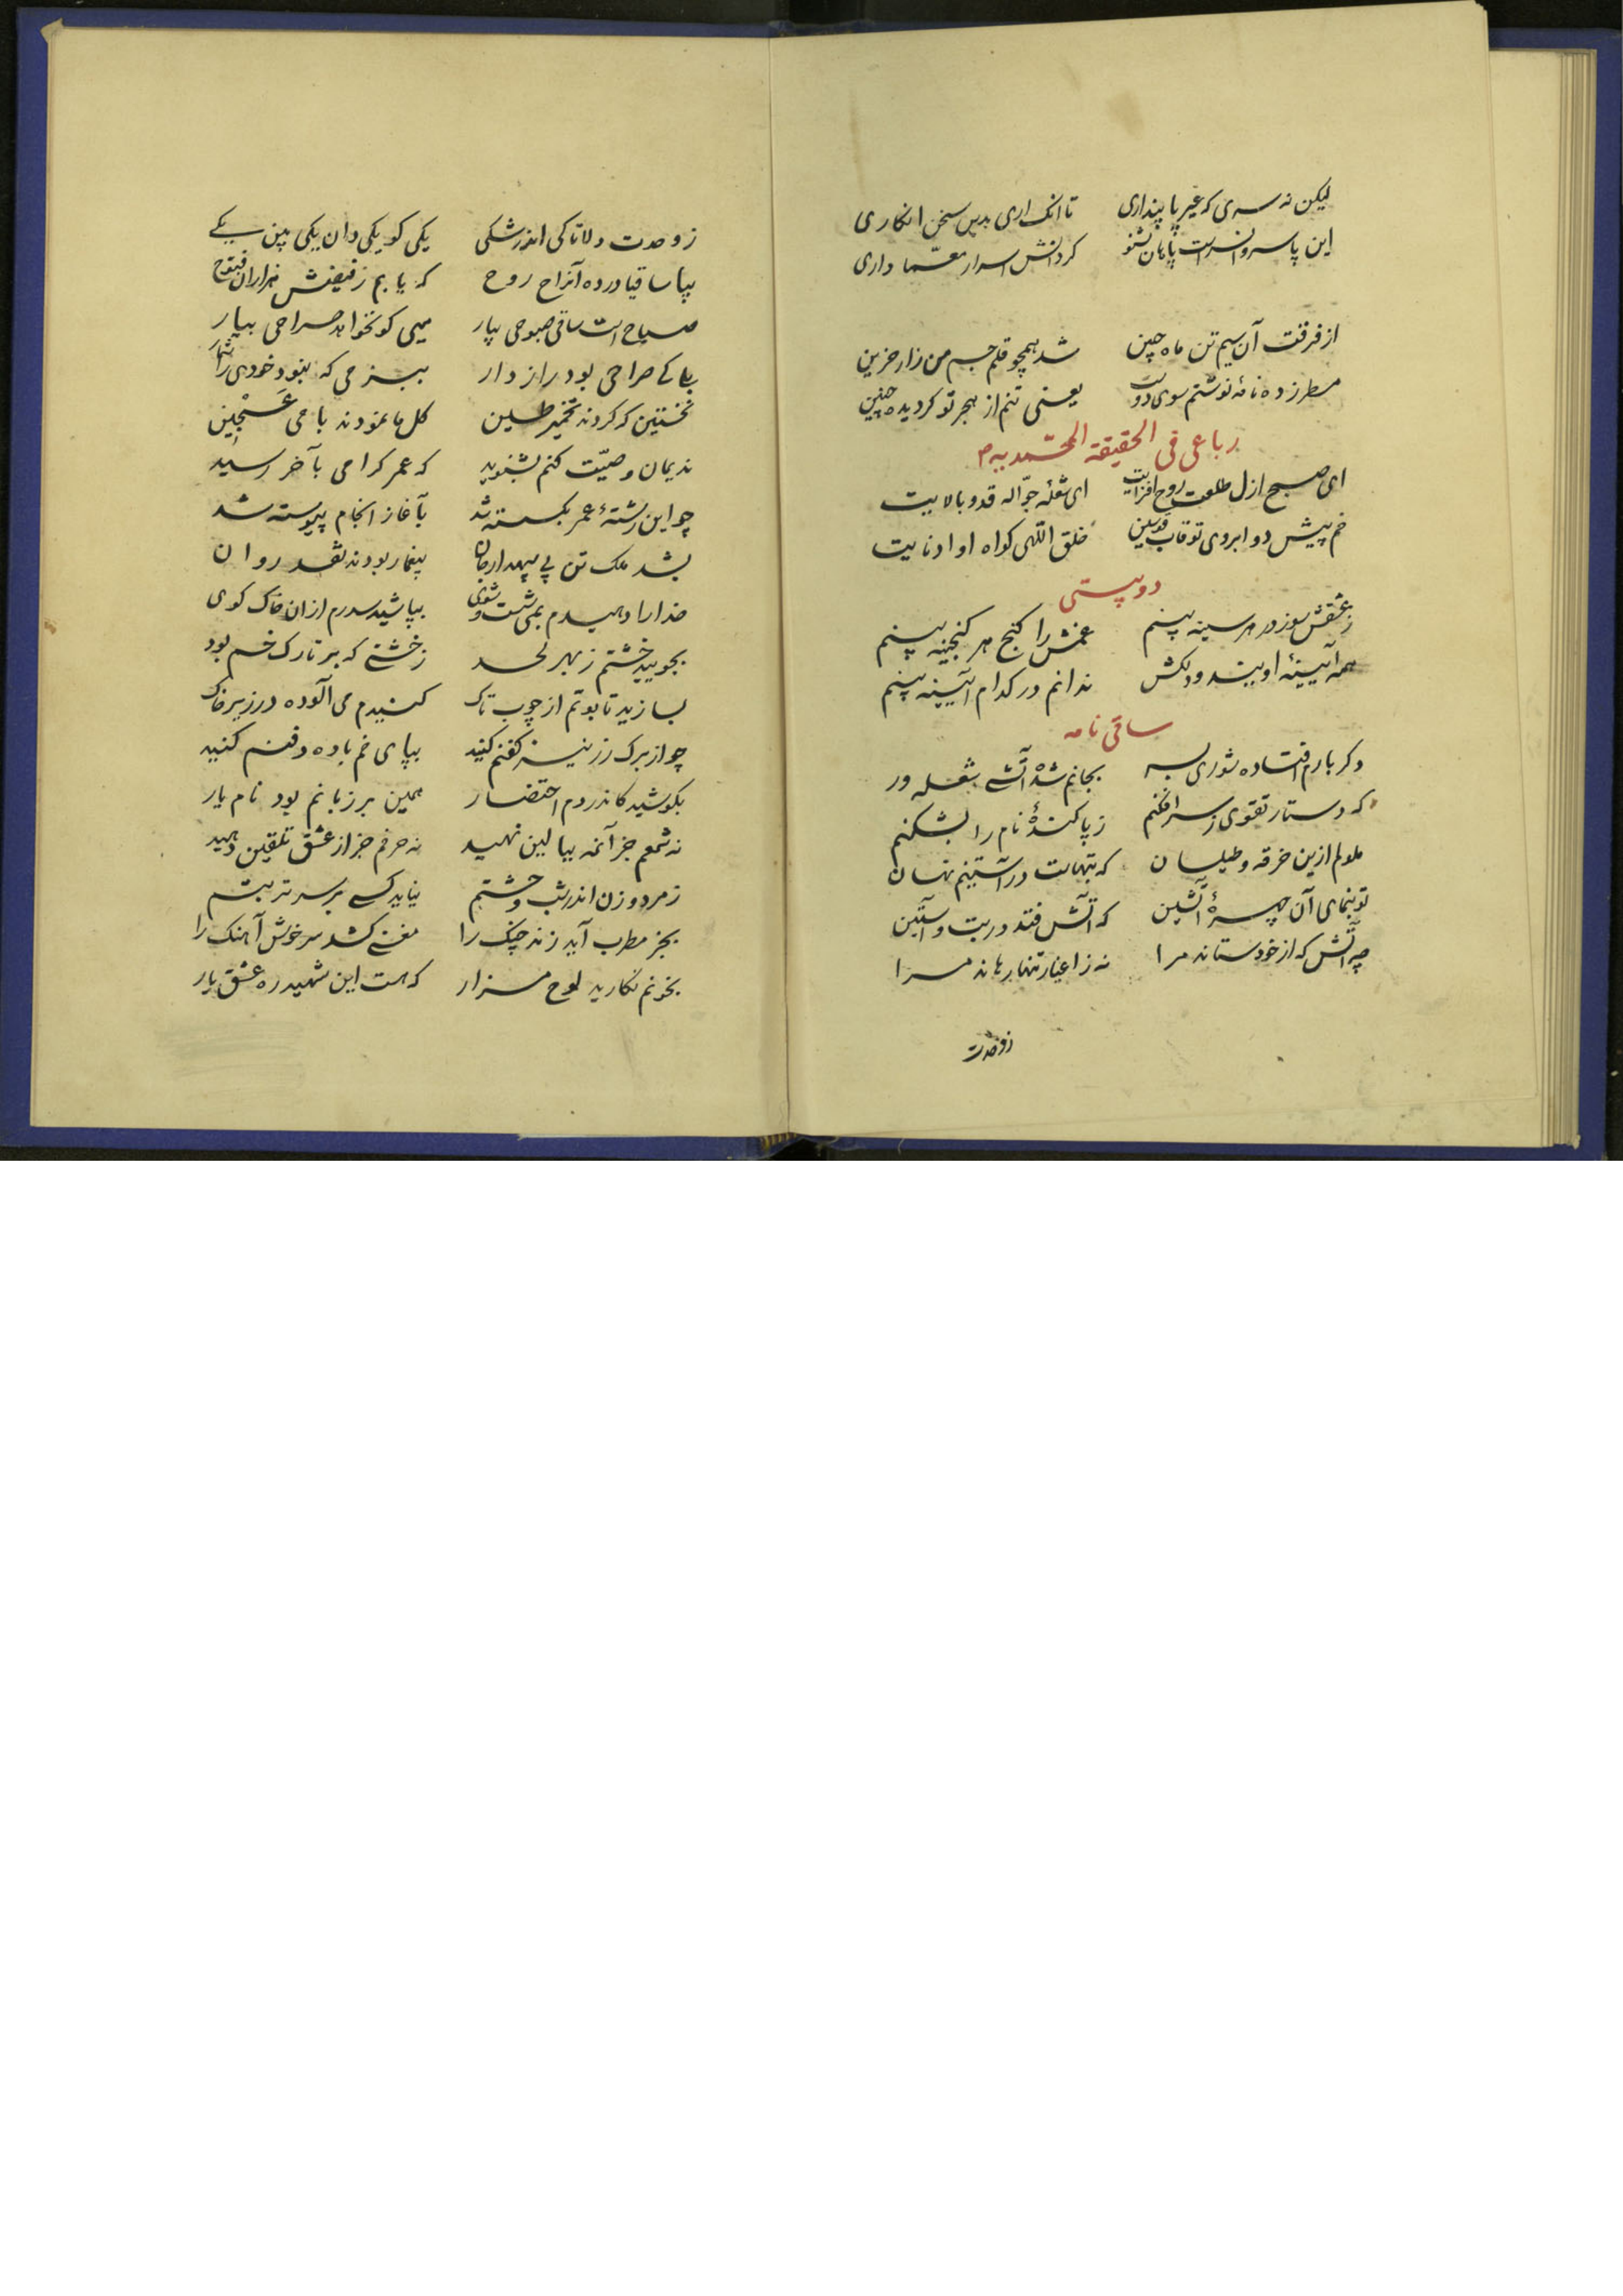 لیکن نه سری که غیر پا پنداری تا انک اری بدین سخن انکاری
این پا سر و آن سر است پا بشنو کر دانش اسرار معمّا داری
از فرقت آن سیم تن ماه جبین شد همچو قلم جسم من زار حزین
مسطر زده نامهٔ نوشتم سوی دوست یعنی تنم از هجر تو کردیده چنین
رباعی فی الحقیقة المحمدیه
ای صبح ازل طلعت روح افزایت ای شعلهٔ جوّاله قد و بالایت
خم پیش دو ابروی تو قاب قوسین خلق اللّهی کواه او ادنایت
دوبیتی
ز عشقش سوز در هر سینه بینم غمش را کنج هر کنجینه بینم
همه آیینهٔ اویند و دلکش ندانم در کدام آیینه بینم
ساقی نامه
دکر بارم افتاده شوری بسر بجانم شد آتش شعله ور
که دستار تقوی ز سر افکنم ز پا کندهٔ نام را بشکنم
ملولم ازین خرقه و طیلسان که بتهاست در آستینم نهان
تو بنمای آن چهرهٔ آتشین که آتش فتد در بت و آستین
چه آتش که از خود ستاند مرا نه ز اغیار تنها رهاند مرا
ز وحدت
ز وحدت دلا تا کی اندر شکی یکی کو یکی دان یکی بین یکی
بیا ساقیا در ده آنراح روح که یابم ز فیضش هزاران فتوح
صباح است ساقی صبوحی بیار میی کو نخواهد صراحی بیار
ببزمی که نبود خودی را شمار
نخستین که کردند تخمیر طین کل ما نمودند با می عجین
ندیمان وصیّت کنم بشنوید که عمر کرامی بآخر رسید
چو این رشتهٔ عمر بکسسته شد بآغاز انجام پیوسته شد
بشد ملک تن بی سپهدار جان بیغما ربودند نقد روان
خدا را دهیدم بمی شست و شوی بپاشید سدرم از ان خاک کوی
بجویید خشتم ز بهر لحد ز خشتی که بر تارک خم بود
بسازید تابوتم از چوب تاک کنیدم می آلوده در زیر خاک
چو از برک رز نیز کفنم کنید بپای خم باده دفنم کنید
بکوشید کاندر دم احتضار همین بر زبانم بود نام یار
نه شمعم جز آنمه ببالین نهید نه حرفم جز از عشق تلقین دهید
ز مرد و زن اندر شب وحشتم نیاید کسی بر سر تربتم
بجز مطرب آید زند چنک را مغنی کشد سر خوش آهنک را
بخونم نکارید لوح مزار که هست این شهید ره عشق یار